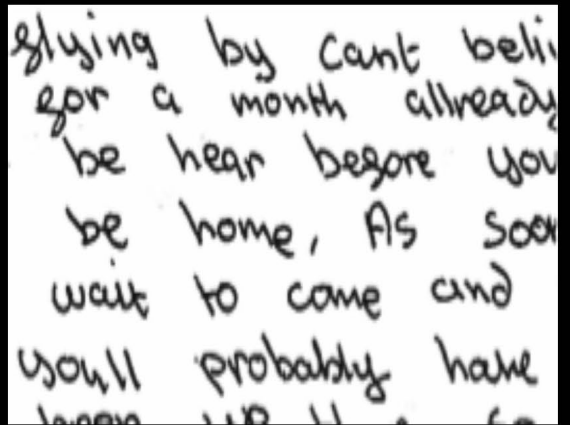 flying by cant beli
for a month allready
be hear before you
be home, As soon
wait to come and
youll probably have